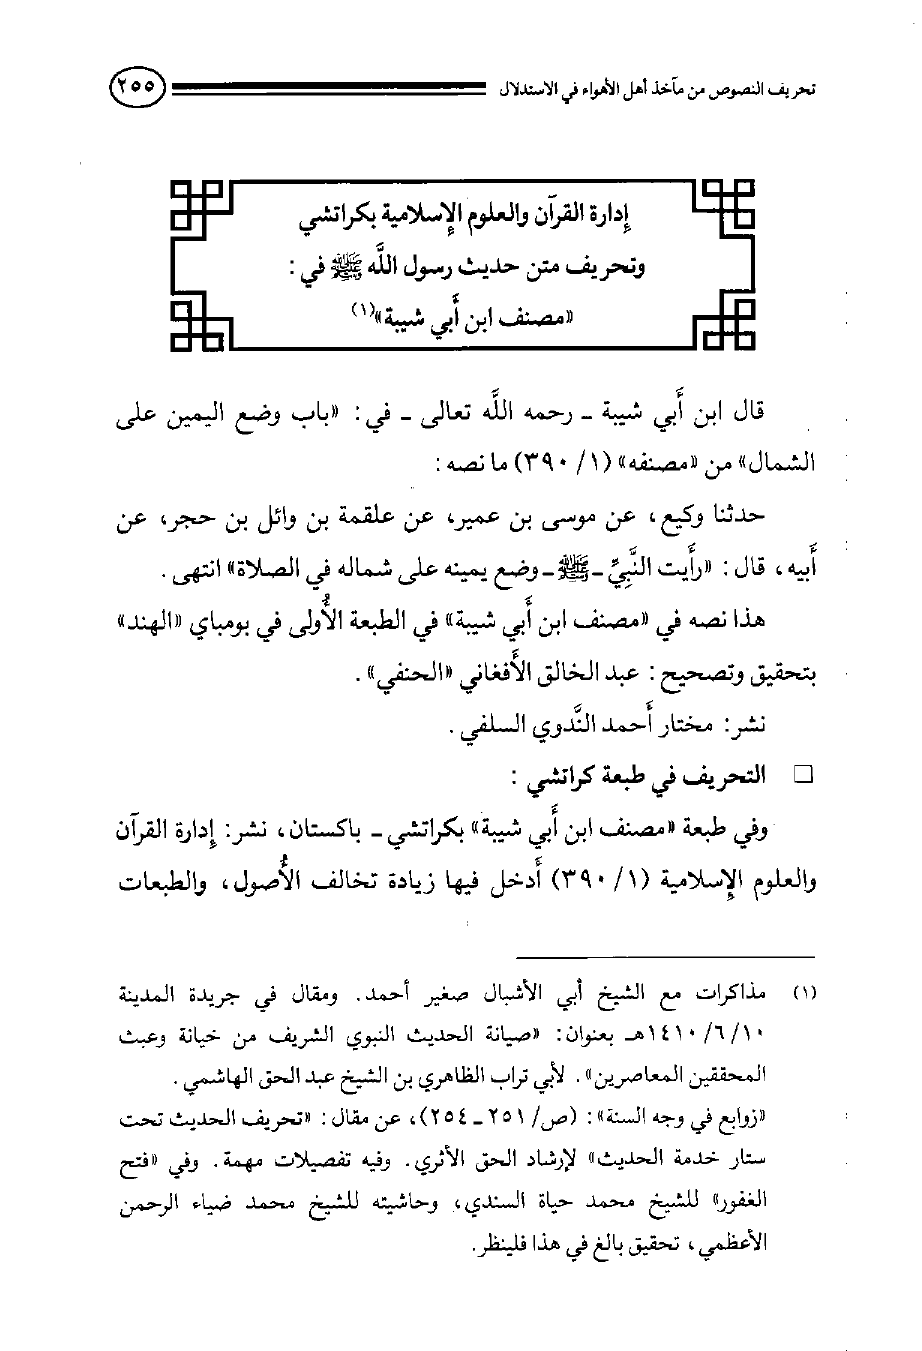 تحريف النصوص من مآخذ أهل الأهواء في الاستدلال ٢٥٥
إدارة القرآن والعلوم الإسلامية بكراتشي
وتحريف متن حديث رسول اللَّه ﷺ في :
«مصنف ابن أبي شيبة»(١)
قال ابن أبي شيبة ـ رحمه اللَّه تعالى ـ في : «باب وضع اليمين على
الشمال» من «مصنفه» (١/ ٣٩٠) ما نصه :
حدثنا وكيع، عن موسى بن عمير، عن علقمة بن وائل بن حجر، عن
أبيه، قال : «رأيت النَّبِيَّ ـ ﷺ ـ وضع يمينه على شماله في الصلاة» انتهى .
هذا نصه في «مصنف ابن أبي شيبة» في الطبعة الأُولى في بومباي «الهند»
بتحقيق وتصحيح : عبد الخالق الأفغاني «الحنفي» .
نشر: مختار أحمد النَّدوي السلفي .
□ التحريف في طبعة كراتشي :
وفي طبعة «مصنف ابن أبي شيبة» بكراتشي ـ باكستان، نشر: إدارة القرآن
والعلوم الإسلامية (١/ ٣٩٠) أدخل فيها زيادة تخالف الأُصول، والطبعات
(١) مذاكرات مع الشيخ أبي الأشبال صغير أحمد. ومقال في جريدة المدينة
١٠/ ٦/ ١٤١٠هـ بعنوان: «صيانة الحديث النبوي الشريف من خيانة وعبث
المحققين المعاصرين». لأبي تراب الظاهري بن الشيخ عبد الحق الهاشمي .
«زوابع في وجه السنة»: (ص/ ٢٥١ ـ ٢٥٤)، عن مقال : «تحريف الحديث تحت
ستار خدمة الحديث» لإرشاد الحق الأثري. وفيه تفصيلات مهمة. وفي «فتح
الغفور» للشيخ محمد حياة السندي، وحاشيته للشيخ محمد ضياء الرحمن
الأعظمي، تحقيق بالغ في هذا فلينظر.